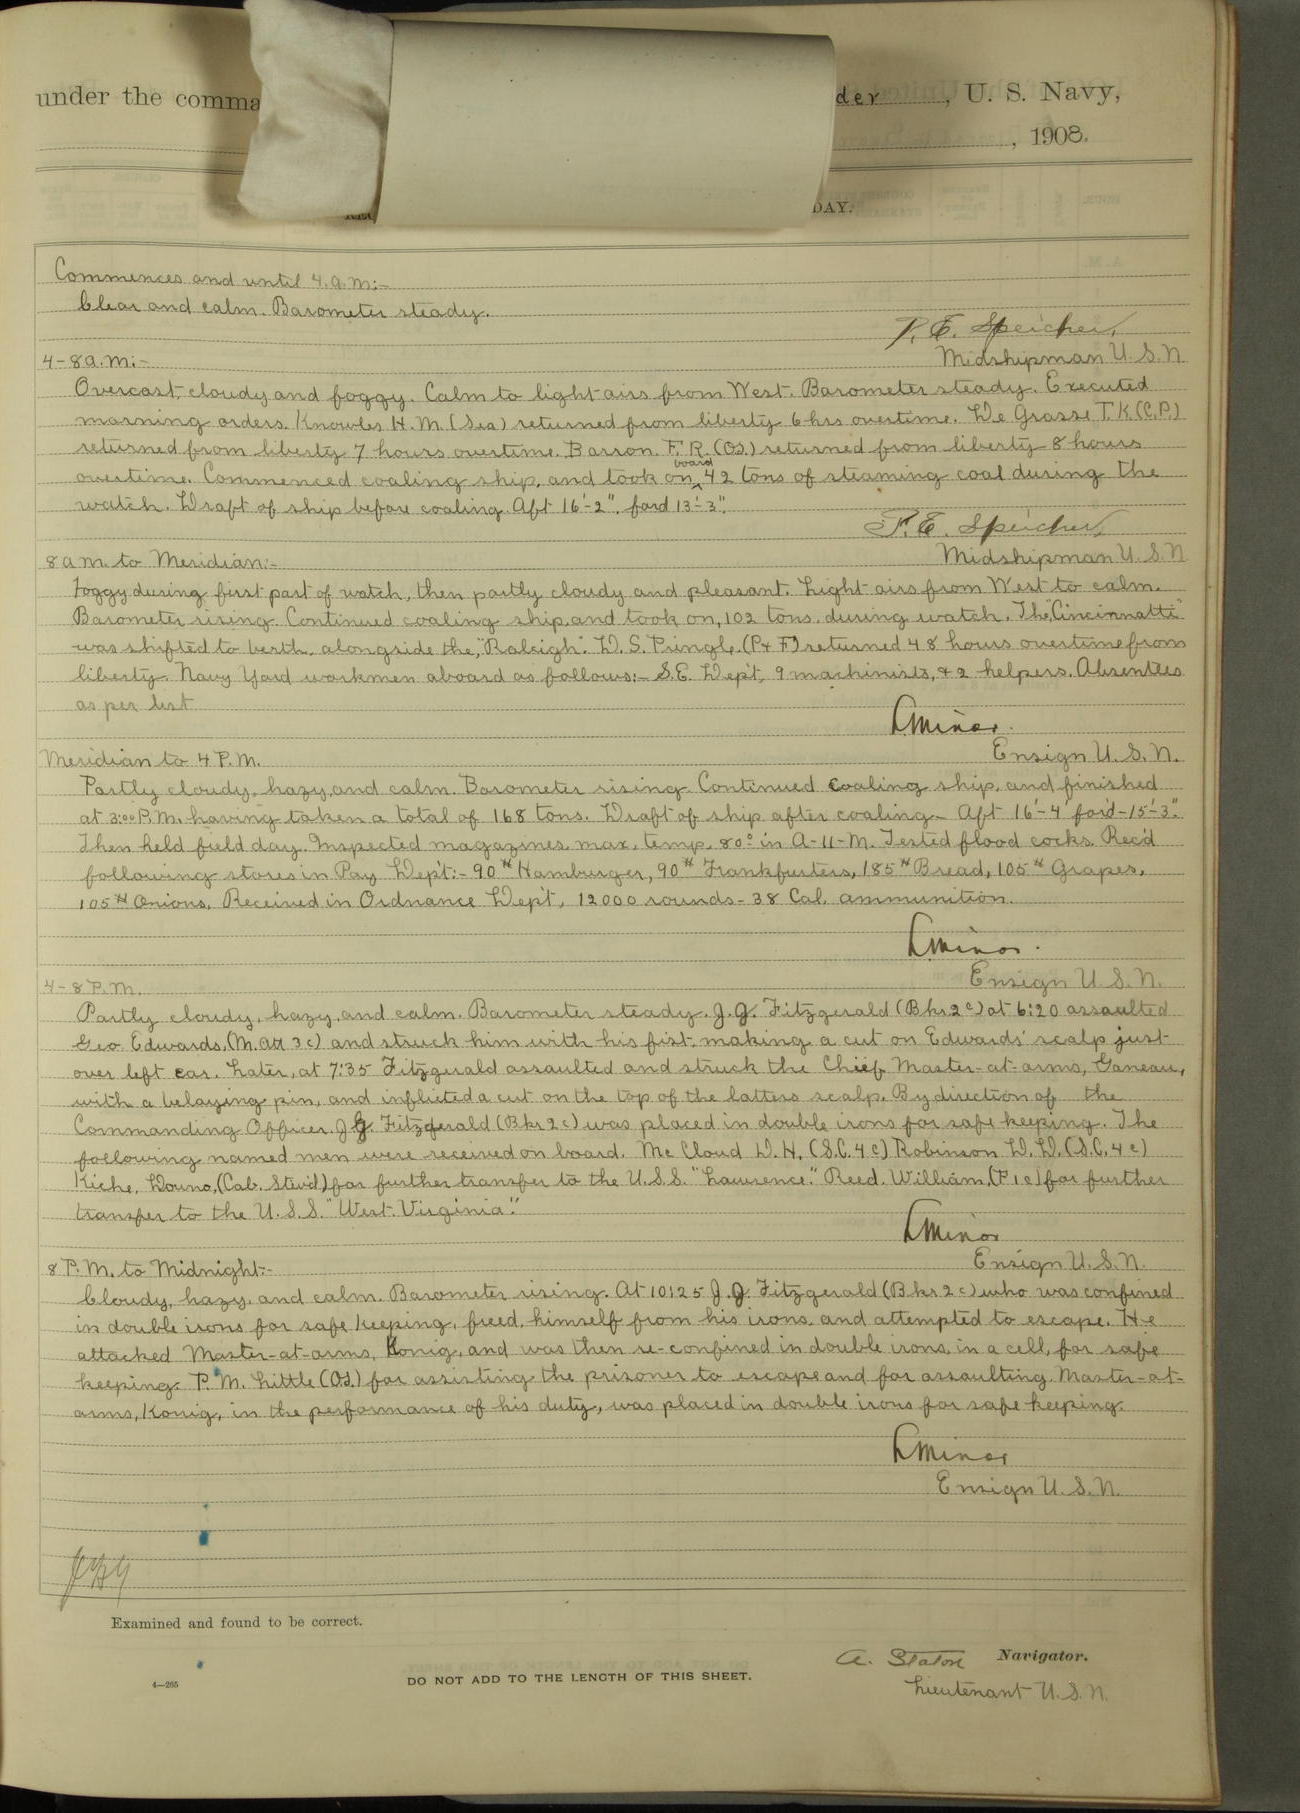 under the comma der, U. S. Navy,
, 1908.
DAY.
Commences and until 4. a. m:-
Clear and calm. Barometer steady.
P. E. Speicher,
Midshipman U. S. N
4-8 a. m:-
Overcast, cloudy and foggy. Calm to light airs from West. Barometer steady. Executed
morning orders. Knowles H. M. (Sea) returned from liberty 6 hrs overtime. De Grasse T. K (C.P.)
returned from liberty 7 hours overtime. Barron. F. R. (OS.) returned from liberty 8 hours
overtime. Commenced coaling ship, and took on board 42 tons of steaming coal during the
watch. Draft of ship before coaling. Aft 16'-2". for'd 13'-3".
P. E. Speicher,
Midshipman U. S. N
8 a m. to Meridian:-
Foggy during first part of watch, then partly cloudy and pleasant. Light airs from West to calm.
Barometer rising. Continued coaling ship, and took on, 102 tons. during watch. The "Cincinnatti"
was shifted to berth. alongside the, "Raleigh". D. S. Pringle. (P & F) returned 48 hours overtime from
liberty. Navy Yard workmen aboard as follows:- S.E. Dep't, 9 machinists, & 2 helpers. Absentees
as per list
L Minor.
Ensign U. S. N.
Meridian to 4 P. M.
Partly cloudy, hazy, and calm. Barometer rising. Continued coaling ship, and finished
at 3:00 P.M. having taken a total of 168 tons. Draft of ship after coaling- Aft 16'-4" for'd-15'-3".
Then held field day. Inspected magazines, max. temp. 80° in A-11-M. Tested flood cocks. Rec'd
following stores in Pay Dep't:- 90# Hamburger, 90# Frankfurters, 185# Bread, 105# Grapes,
105# Onions. Received in Ordnance Dep't, 12000 rounds- 38 Cal. ammunition.
L Minor.
Ensign U. S. N.
4-8 P. M.
Partly cloudy, hazy, and calm. Barometer steady. J. J. Fitzgerald (Bkr 2c) at 6:20 assaulted
Geo. Edwards, (M. att 3c) and struck him with his fist, making a cut on Edwards' scalp just
over left ear. Later, at 7:35 Fitzgerald assaulted and struck the Chief Master-at-arms, Ganeau,
with a belaying pin, and inflicted a cut on the top of the latters scalp. By direction of the
Commanding Officer J J Fitzgerald (Bkr 2c) was placed in double irons for safe keeping. The
following named men were received on board. Mc Cloud D. H. (S.C. 4c) Robinson D. D. (S.C. 4c)
Kiche, Douno, (Cab. Stew'd) for further transfer to the U.S.S. "Lawrence." Reed. William, (F 1c) for further
transfer to the U. S. S. "West. Virginia".
L Minor
Ensign U. S. N.
8 P. M. to Midnight:-
Cloudy, hazy, and calm. Barometer rising. At 10:25 J. J. Fitzgerald (Bkr 2c) who was confined
in double irons for safe keeping, freed, himself from his irons, and attempted to escape. He
attacked Master-at-arms, Konig, and was then re-confined in double irons, in a cell, for safe
keeping. P. M. Little (OS.) for assisting the prisoner to escape and for assaulting, Master-at-
arms, Konig, in the performance of his duty, was placed in double irons for safe keeping.
L Minor
Ensign U. S. N.
Examined and found to be correct.
A. Staton Navigator.
Lieutenant U. S. N.
4-265
DO NOT ADD TO THE LENGTH OF THIS SHEET.